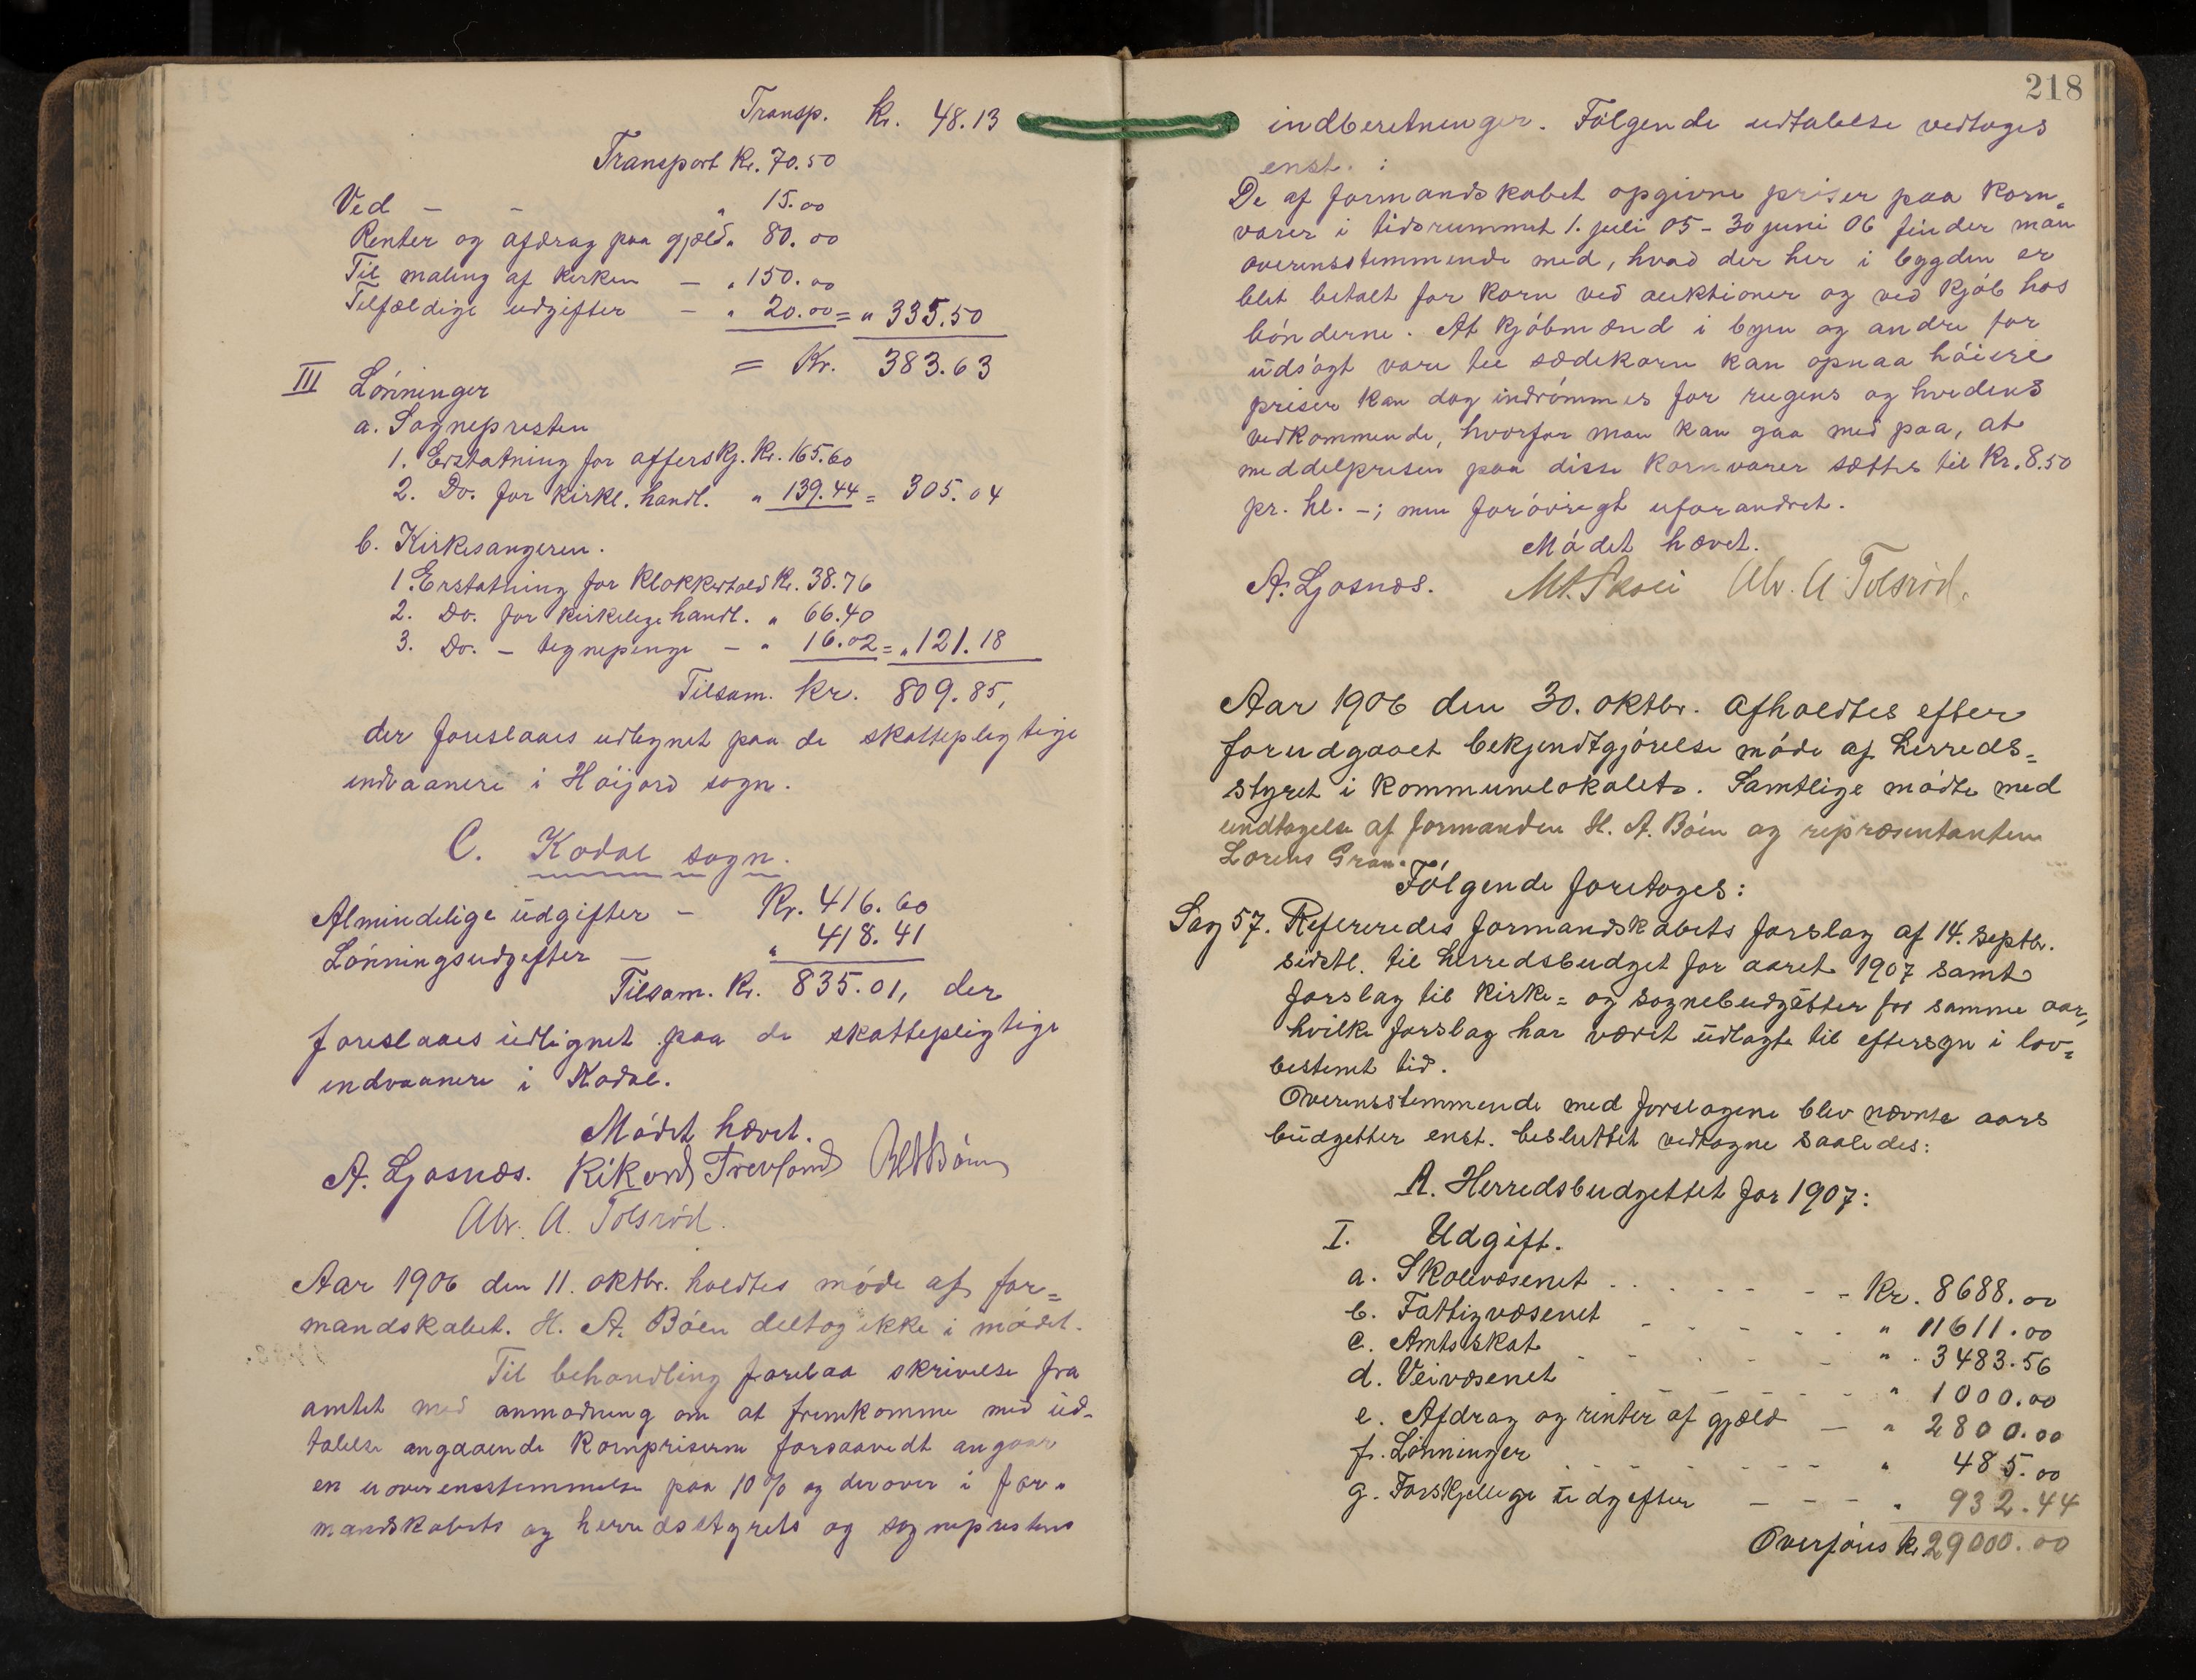 Transp. Kr. 48.13
Transport Kr. 70.50
Ved - - " 15.00
Renter og afdrag paa gjæld " 80.00
Til maling af kirken - " 150.00
Tilfældige udgifter - " 20.00 = " 335.50
= Kr. 383.63
III Lönninger
a. Sognepresten
1. Erstatning for offersKj. Kr. 165.60
2. Do. for Kirkl. handl. " 139.44 = 305.04
b. Kirkesangeren.
1. Erstatning for Klokkertold Kr. 38.76
2. Do. for kirkelige handl. " 66.40
3. Do. - tegnepenge - " 16.02 = " 121.18
Tilsam. Kr. 809.85,
der foreslaaes udlignet paa de skattepligtige
indvaanere i Höijord sogn.
C. Kodal sogn.
Almindelige udgifter - Kr. 416.60
Lönningsudgifter - " 418.41
Tilsam. Kr. 835.01, der
foreslaaes udlignet paa de skattepligtige
indvaanere i Kodal.
Mödet hævet.
A. Gjosnæs. Rikard Trevland
Alv. A. Tolsröd.
Aar 1906 den 11. oktbr. holdtes möde af for=
mandskabet. H. A. Böen deltog ikke i mödet.
Til behandling forelaa skrivelse fra
amtet med anmodning om at fremkomme med ud-
talelse angaaende kornpriserne forsaavidt angaar
en uoverensstemmelse paa 10% og derover i for-
mandskabets og herredsstyrets og sogneprestens
218
indberetninger. Fölgende udtalelse vedtoges
enst. :
De af formandskabet opgivne priser paa korn=
varer i tidsrummet 1. juli 05 - 30 juni 06 finder man
overensstemmende med, hvad der her i bygden er
blet betalt for korn ved auktioner og ved kjöb hos
bönderne. At kjöbmænd i byen og andre for
udsögt vare til sædekorn kan opnaa höiere
priser kan dog indrömmes for rugens og hvedens
vedkommende, hvorfor man kan gaa med paa, at
middelprisen paa disse kornvarer sættes til Kr. 8.50
pr. hl. -; men forövrigt uforandret.
Mödet hævet.
A. Gjosnæs. M. Skoli Alv. A Tolsröd.
Aar 1906 den 30. oktbr. afholdtes efter
forudgaaet bekjendtgjörelse möde af herreds=
styret i kommunelokalet. Samtlige mödte med
undtagelse af formanden H. A. Böen og repræsentanten
Lorens Gran.
Fölgende foretoges:
Sag 57. Refereredes formandskabets forslag af 14. septbr.
sidstl. til herredsbudget for aaret 1907 samt
forslag til kirke= og sognebudgetter for samme aar,
hvilke forslag har været udlagte til eftersyn i lov=
bestemt tid.
Overensstemmende med forslagene blev nævnte aars
budgetter enst. besluttet vedtagne saaledes:
A. Herredsbudgettet for 1907:
I. Udgift.
a. Skolevæsenet . . - - - - Kr. 8688.00
b. Fattigvæsenet - - - - - " 11611.00
c. Amtsskat - - - - - " 3483.56
d. Veivæsenet - - - - - " 1000.00
e. Afdrag og renter af gjæld - " 2800.00
f. Lönninger - - - - - " 485.00
g. Forskjellige udgifter - - - " 932.44
Overföres Kr. 29000.00